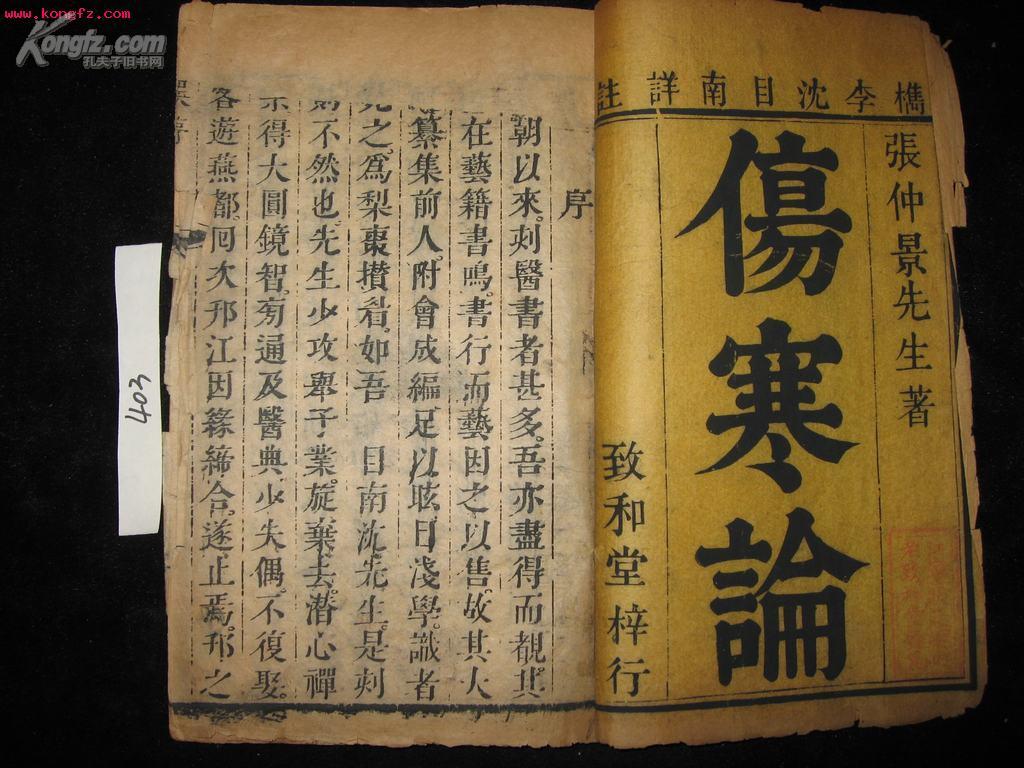 www.kongfz.com
Kongfz.com
孔夫子旧书网
檇李沈目南詳註
張仲景先生著
傷寒論
致和堂梓行
序
朝以來。刻醫書者甚多。吾亦盡得而觀。其
在藝籍書鳴。書行而藝因之以售。故其大
纂集前人。附會成編。足以眩目淺學。識者
見之。為梨棗攢眉。如吾 目南沈先生。是刻
則不然也。先生少攻舉子業。旋棄去。潛心禪
宗得大圓鏡智。旁通及醫典。少失偶。不復娶。
客遊燕都。回次邗江。因緣締合。遂止焉。邗之
403